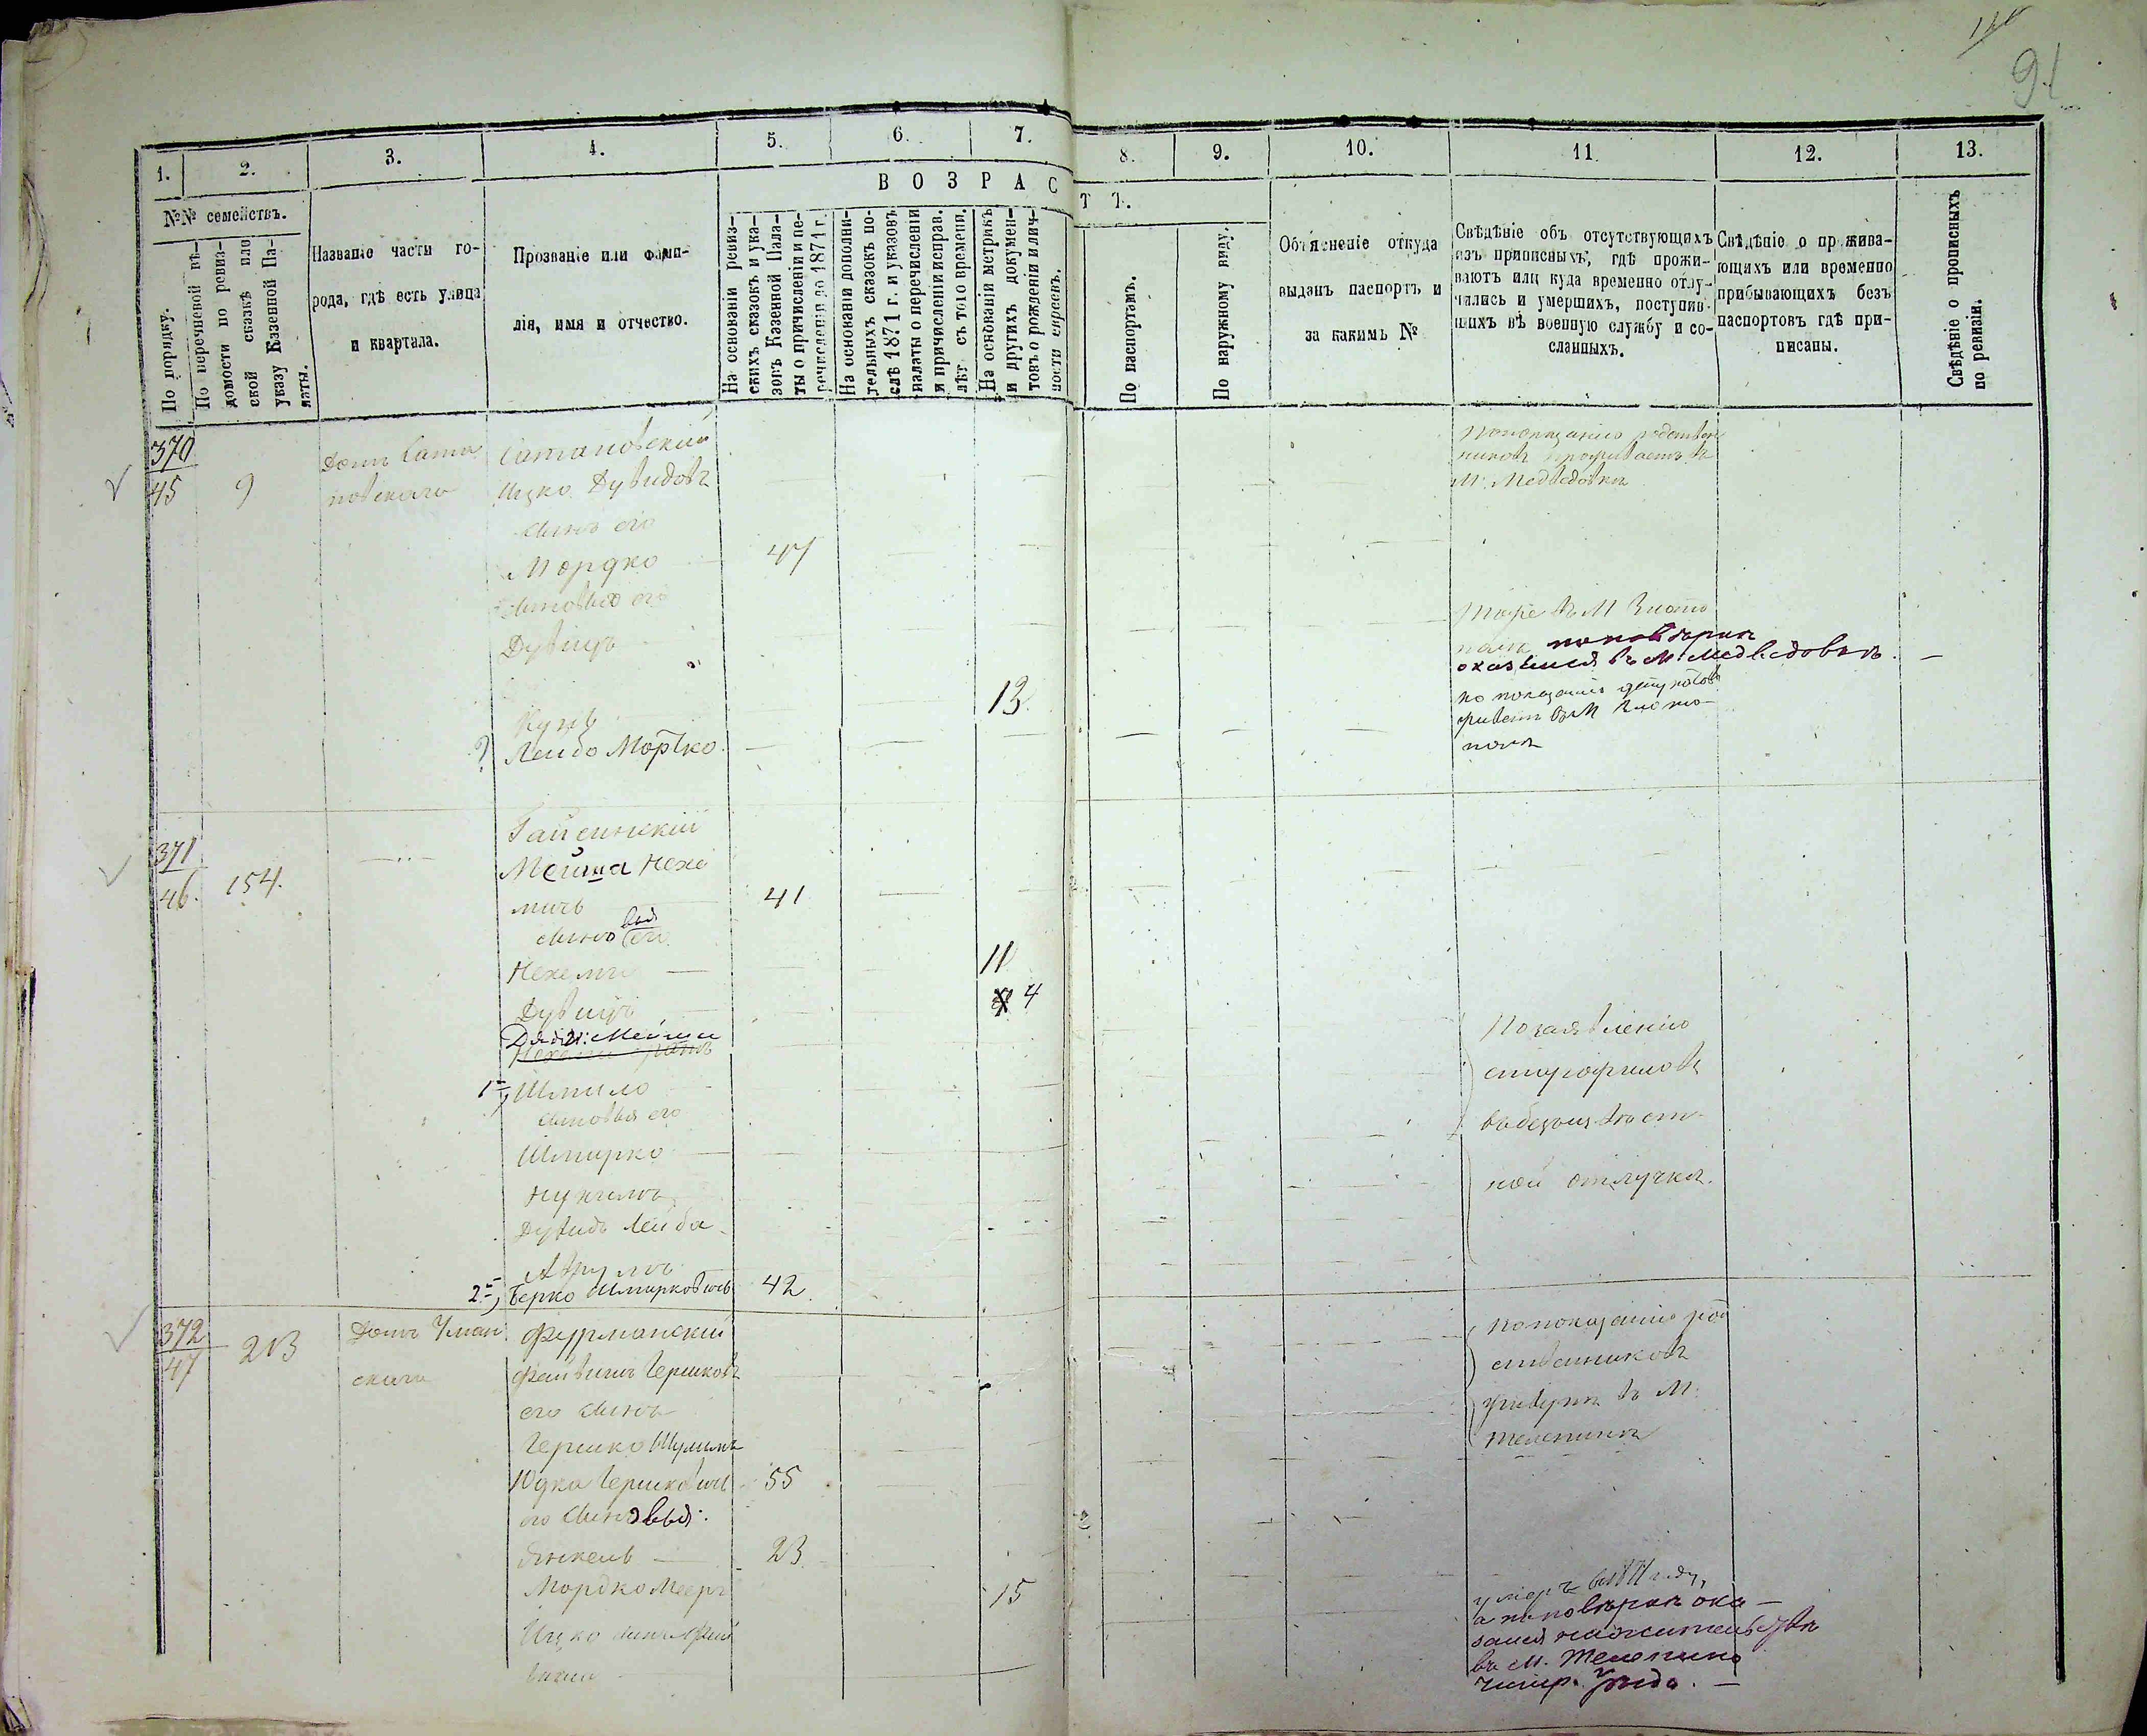 91
1.
2.
3.
4.
5.
6.
7.
8.
9.
10.
11.
12.
13.
№№ семействъ.
По порядку.
По перечневой вѣ-
домости по ревиз-
ской сказкѣ или
указу Казенной Па-
латы.
Названіе части го-
рода, гдѣ есть улица
и квартала.
Прозваніе или фами-
лія, имя и отчество.
ВОЗРАСТЪ.
На основаніи ревиз-
скихъ сказокъ и ука-
зовъ Казенной Пала-
ты о причисленіи и пе-
речисленіи до 1871 г.
На основаніи дополни-
тельныхъ сказокъ по-
слѣ 1871 г. и указовъ
палаты о перечисленіи
и причисленіи исправ.
лѣт съ того времени.
На основаніи метрикъ
и другихъ докумен-
товъ о рожденіи и лич-
ности евреевъ.
По паспортамъ.
По наружному виду.
Объясненіе откуда
выданъ паспортъ и
за какимъ №
Свѣдѣніе объ отсутствующихъ
изъ приписныхъ, гдѣ прожи-
ваютъ или куда временно отлу-
чились и умершихъ, поступив-
шихъ въ военную службу и со-
сланныхъ.
Свѣдѣніе о прожива-
ющихъ или временно
прибывающихъ безъ
паспортовъ гдѣ при-
писаны.
Свѣдѣніе о прописныхъ
по ревизіи.
370
45
9
Домъ Сата
новскаго
Сатановскій
Ицко Дувидовъ
сынъ его
Мордко
47
сыновья его
Дувидъ
13
Лейбо Мортко
По показанію родствен
никовъ проживаетъ въ
М. Медведовкѣ
Тоже въ М Злато
полѣ по повѣркѣ
оказался въ М. Медведовкѣ. —
по показанію
живетъ въ М Злато-
полѣ
371
46.
154.
Гайсинскій
Мейша Нехе
мичъ
41
сыно его
вья
Нехемъ —
11
Дувидъ
4
Дяди: Мейши
1, Шмило
сыновья его
Шмирко
Нухимъ
Дувидъ Лейба
Аврумъ
2, Берко Шмирковичъ
42
По заявленію
въ безъизвѣст-
ной отлучкѣ.
372
47
213
Домъ Уман
скаго
Фурманскій
Файвишъ Гершковъ
его сынъ
Гершко Шулимъ
Юдка Гершковичъ
55
его сыновья:
Янкель —
23
Мордко Мееръ
15
Ицко
По показанію род
ственниковъ
живутъ въ М.
Телепинѣ
умеръ въ 1871 году,
а по повѣркѣ ока-
зался на жительствѣ
въ М. Телепино
Чигир. уѣзда. —